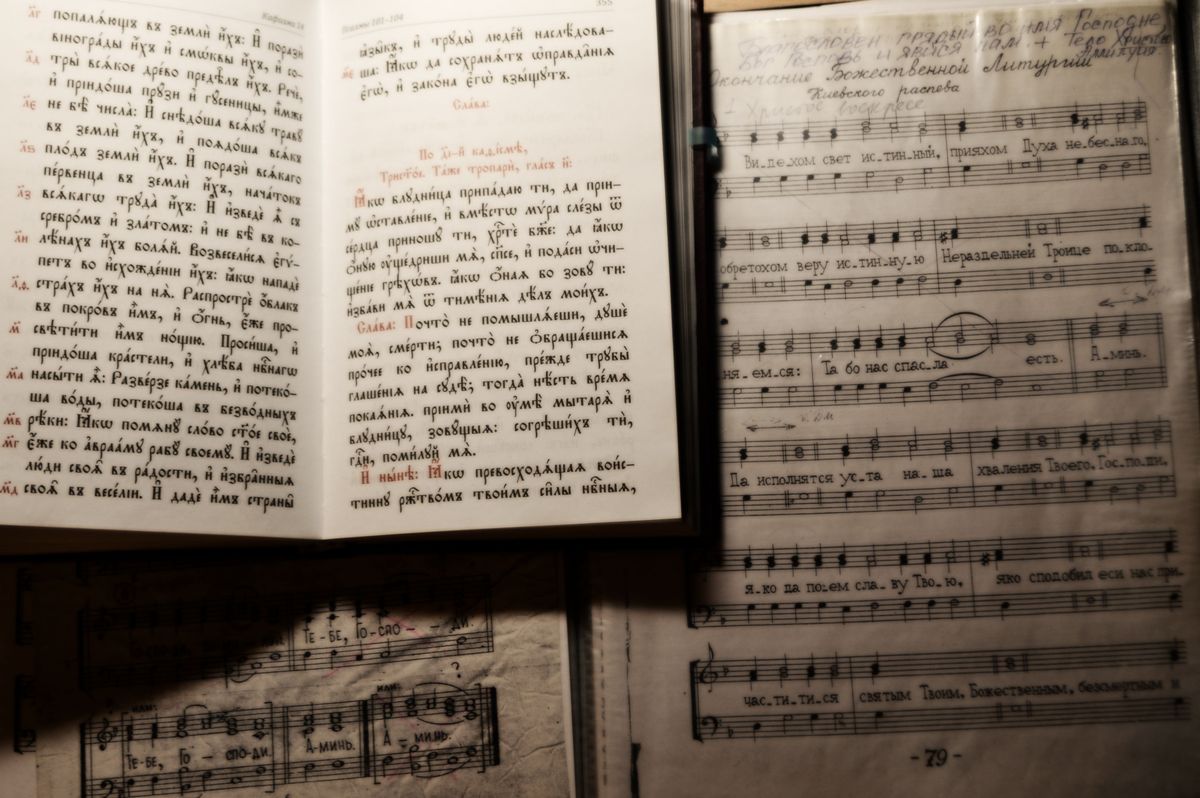 Каѳисма 14
л҃г попалѧ́ющь въ землѝ и҆́хъ: И҆ поразѝ
виногра́ды и҆́хъ и҆ смѡ́квы и҆́хъ, и҆ со-
л҃д трѝ всѧ́кое дре́во предѣ̑лъ и҆́хъ. Речѐ,
и҆ прїидо́ша прꙋ́зи и҆ гꙋ́сеницы, и҆̀мже
л҃є не бѣ̀ числа̀: И҆ снѣдо́ша всѧ́кꙋ травꙋ̀
въ землѝ и҆́хъ, и҆ поѧдо́ша всѧ́къ
л҃ѕ пло́дъ землѝ и҆́хъ. И҆ поразѝ всѧ́каго
пе́рвенца въ землѝ и҆́хъ, нача́токъ
л҃з всѧ́кагѡ трꙋда̀ и҆́хъ: И҆ и҆зведѐ ѧ҆̀ съ
сребро́мъ и҆ зла́томъ: и҆ не бѣ̀ въ ко-
л҃и лѣ́нахъ и҆́хъ болѧ́й. Возвесели́сѧ є҆гѵ́-
петъ во и҆схожде́нїи и҆́хъ: ꙗ҆́кѡ нападѐ
л҃ѳ стра́хъ и҆́хъ на нѧ̀. Распрострѐ ѻ҆́блакъ
въ покро́въ и҆̀мъ, и҆ ѻ҆́гнь, є҆́же про-
м҃ свѣти́ти и҆̀мъ но́щїю. Проси́ша, и҆
прїидо́ша кра́стели, и҆ хлѣ́ба нбⷭ҇нагѡ
м҃а насы́ти ѧ҆̀: Разве́рзе ка́мень, и҆ потеко́-
ша во́ды, потеко́ша въ безво́дныхъ
м҃в рѣ́ки: Ꙗ҆́кѡ помѧнꙋ̀ сло́во ст҃о́е своѐ,
м҃г є҆́же ко а҆враа́мꙋ рабꙋ̀ своемꙋ̀. И҆ и҆зведѐ
лю́ди своѧ̑ въ ра́дости, и҆ и҆збра̑нныѧ
м҃д своѧ̑ въ весе́лїи. И҆ дадѐ и҆̀мъ страны̑
Псалмы 101-104 355
ꙗ҆зы̑къ, и҆ трꙋды̀ люде́й наслѣ́дова-
м҃є ша: Ꙗ҆́кѡ да сохранѧ́тъ ѡ҆правда̑нїѧ
є҆гѡ̀, и҆ зако́на є҆гѡ̀ взы́щꙋтъ.
Сла́ва:
По д҃і-й каѳі́смѣ,
Трист҃о́е. Та́же тропарѝ, гла́съ и҃:
Ꙗ҆́кѡ блꙋдни́ца припа́даю тѝ, да прїи-
мꙋ̀ ѡ҆ставле́нїе, и҆ вмѣ́стѡ мѵ́ра сле́зы ѿ
се́рдца приношꙋ́ ти, хрⷭ҇тѐ бж҃е: да ꙗ҆́кѡ
ѻ҆́нꙋю ᲂу҆ще́дриши мѧ̀, сп҃се, и҆ пода́си ѡ҆чи-
ще́нїе грѣхѡ́въ. ꙗ҆́кѡ ѻ҆́наѧ бо зовꙋ́ ти:
и҆зба́ви мѧ̀ ѿ тимѣ́нїѧ дѣ́лъ мои́хъ.
Сла́ва: Почто̀ не помышлѧ́еши, дꙋшѐ
моѧ̀, сме́рти; почто̀ не ѡ҆браща́ешисѧ
про́чее ко и҆справле́нїю, пре́жде трꙋбы̀
глаше́нїѧ на сꙋдѣ̀; тогда̀ нѣ́сть вре́мѧ
покаѧ́нїѧ. прїимѝ во ᲂу҆мѣ̀ мытарѧ̀ и҆
блꙋдни́цꙋ, зовꙋ́щыѧ: согрѣши́хъ тѝ,
гдⷭ҇и, поми́лꙋй мѧ̀.
И҆ ны́нѣ: Ꙗ҆́кѡ превосходѧ́щаѧ вои́с-
тиннꙋ ржⷭ҇тво́мъ твои́мъ си̑лы нбⷭ҇ныѧ,
Благословен грядый во имя Господне,
Бог Господь и явися нам. + Тело Христово
Аллилуия
Окончание Божественной Литургии
Киевского распева
+ Христос воскресе
Ви-де-хом свет ис-тин-ный, прияхом Духа не-бес-на-го,
обретохом веру ис-тин-ну-ю Нераздельней Троице по-кло-
ня-ем-ся: Та бо нас спас-ла есть. А-минь.
Да исполнятся ус-та на-ша хваления Твоего, Гос-по-ди,
я-ко да по-ем сла-ву Тво-ю, яко сподобил еси нас при-
час-ти-ти-ся святым Твоим, Божественным, безсмертным и
-79-
ТЕ-БЕ, ГО-СПО--ДИ.
или: или: ?
ТЕ-БЕ, ГО-СПО-ДИ. А-МИНЬ. А-МИНЬ.